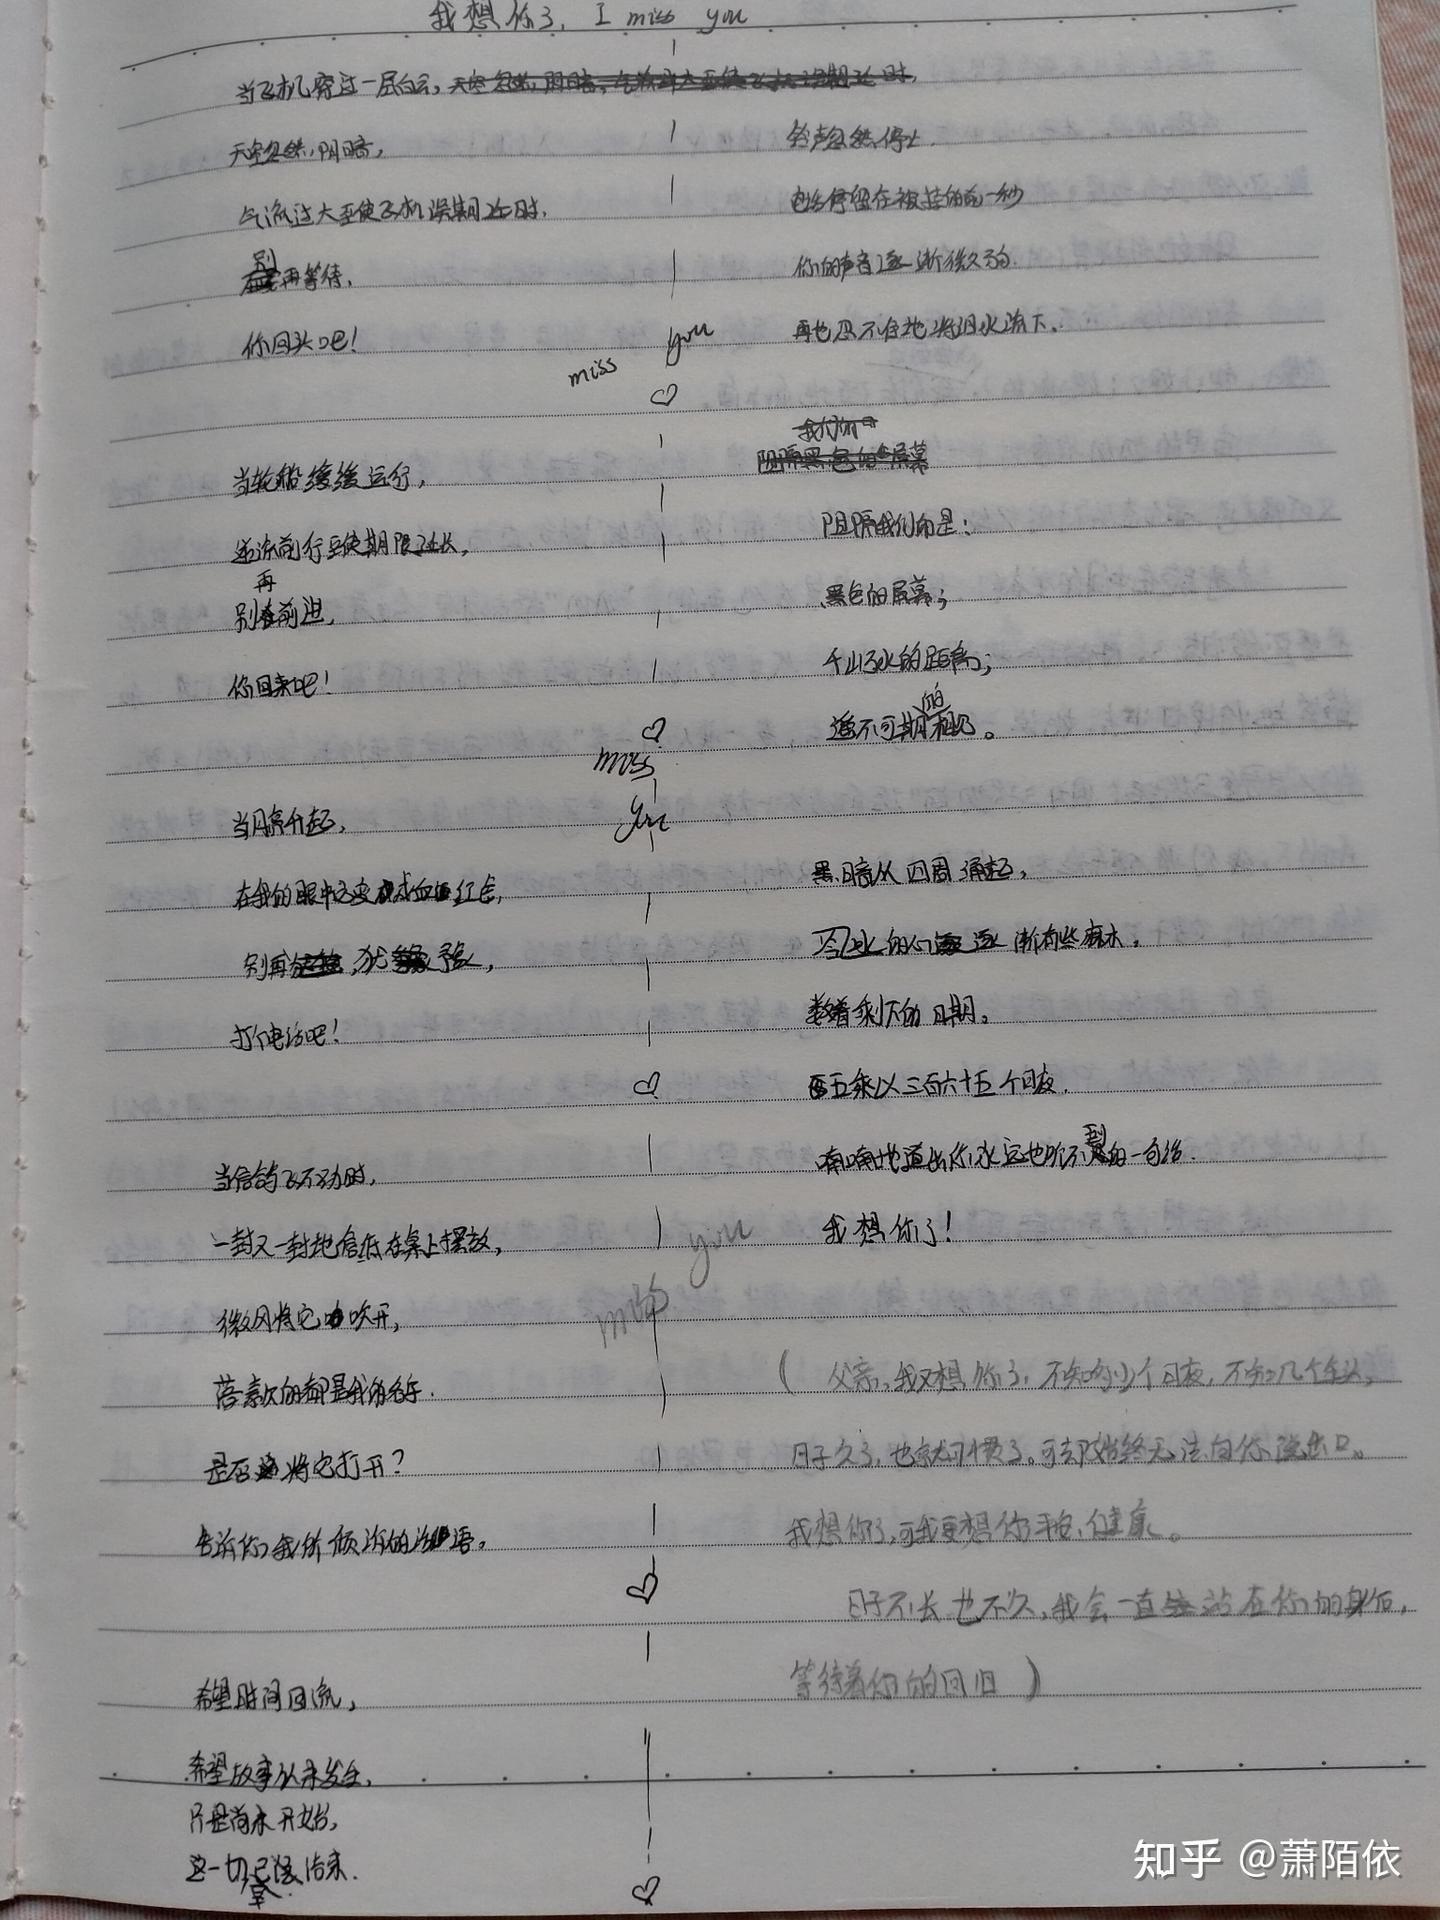 我想你了, I miss you
当飞机穿过一层白云,
天空忽然,阴暗,
气流过大至使飞机误期延时,
别再等待,
你回头吧!
miss you
当轮船缓缓运行,
逆流前行至使期限延长,
别再前进,
你回来吧!
miss
you
当月亮升起,
在我的眼中还变成血红色,
别再犹豫,
打个电话吧!
当信鸽飞不动时,
一封又一封地信纸在桌上摆放,
微风将它吹开,
落款的都是我的名字.
是否将它打开?
告诉你,我所倾诉的话语。
希望时间回流,
希望故事从未发生,
只是尚未开始,
这一切已
铃声忽然停止.
也停留在被挂的前一秒
你的声音逐渐微弱.
再也忍不住地将泪水流下.
阻隔我们的是:
黑色的屏幕;
千山万水的距离;
遥不可期的相见。
黑暗从四周涌起,
冷冰的心逐渐有些麻木,
数着剩下的日期。
五乘以三百六十五个日夜.
喃喃地道出你永远也听不到的一句话.
我想你了!
you
miss
(父亲,我又想你了,不知多少个日夜,不知几个年头,
日子久了,也就习惯了。可却始终无法向你说出口。
我想你了,可我更想你平安,健康。
日子不长也不久,我会一直站在你的身后,
等待着你的回归)
知乎 @萧陌依